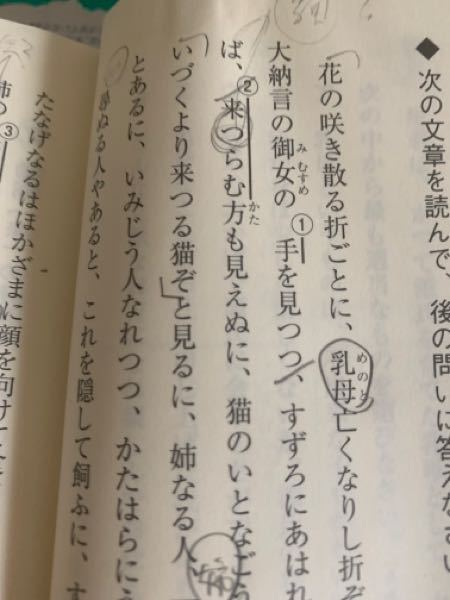 ◆ 次の文章を読んで、後の問いに答えなさい
花の咲き散る折ごとに、乳母亡くなりし折ぞ
めのと
大納言の御女の①手を見つつ、すずろにあはれ
みむすめ
ば、②来つらむ方も見えぬに、猫のいとなごう
かた
いづくより来つる猫ぞと見るに、姉なる人、
とあるに、いみじう人なれつつ、かたはらにう
ぬる人やあると、これを隠して飼ふに、す
たなげなるはほかざまに顔を向けて
姉の③